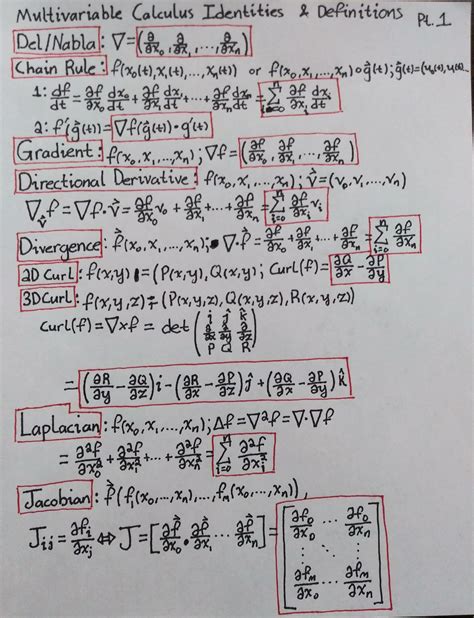 Multivariable Calculus Identities & Definitions Pt.1
Del/Nabla: ∇=(∂/∂x₀, ∂/∂x₁, ..., ∂/∂xₙ)
Chain Rule: f(x₀(t),x₁(t),...,xₙ(t)) or f(x₀,x₁,...,xₙ)∘g⃗(t); g⃗(t)=
1: df/dt = ∂f/∂x₀ dx₀/dt + ∂f/∂x₁ dx₁/dt + ... + ∂f/∂xₙ dxₙ/dt = Σ_{i=0}^{n} ∂f/∂xᵢ dxᵢ/dt
2: f'(g⃗(t))=∇f(g⃗(t))·g'(t)
Gradient: f(x₀,x₁,...,xₙ); ∇f=(∂f/∂x₀, ∂f/∂x₁, ..., ∂f/∂xₙ)
Directional Derivative: f(x₀,x₁,...,xₙ); v⃗=(v₀,v₁,...,vₙ)
∇_v⃗ f=∇f·v⃗=∂f/∂x₀ v₀+∂f/∂x₁ v₁+...+∂f/∂xₙ vₙ=Σ_{i=0}^{n} ∂f/∂xᵢ vᵢ
Divergence: f⃗(x₀,x₁,...,xₙ); ∇·f⃗=∂f/∂x₀+∂f/∂x₁+...+∂f/∂xₙ=Σ_{i=0}^{n} ∂f/∂xₙ
2D Curl: f(x,y)=(P(x,y),Q(x,y); Curl(f)=∂Q/∂x-∂P/∂y
3D Curl: f(x,y,z)=(P(x,y,z),Q(x,y,z),R(x,y,z))
curl(f)=∇×f=det(î ĵ k̂
∂/∂x ∂/∂y ∂/∂z
P Q R)
=(∂R/∂y-∂Q/∂z)î-(∂R/∂x-∂P/∂z)ĵ+(∂Q/∂x-∂P/∂y)k̂
Laplacian: f(x₀,x₁,...,xₙ); Δf=∇²f=∇·∇f
=∂²f/∂x₀²+∂²f/∂x₁²+...+∂²f/∂xₙ²=Σ_{i=0}^{n} ∂²f/∂xᵢ²
Jacobian: f⃗(f₁(x₀,...,xₙ),...,fₘ(x₀,...,xₙ)),
Jᵢⱼ=∂fᵢ/∂xⱼ ⇔ J=[∂f⃗/∂x₀ ∂f⃗/∂x₁ ... ∂f⃗/∂xₙ]=[∂f₀/∂x₀ ... ∂f₀/∂xₙ
⋮ ⋱ ⋮
∂fₘ/∂x₀ ... ∂fₘ/∂xₙ]